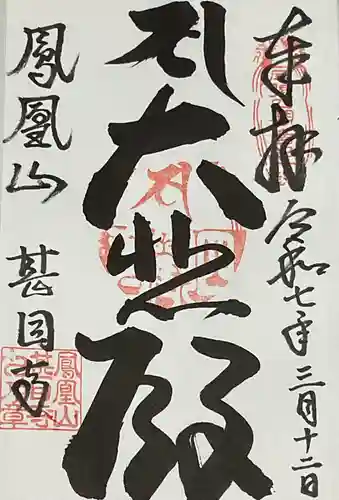 奉拝 令和七年三月十二日
大悲殿
鳳凰山 甚目寺
鳳凰山
甚目寺
之章